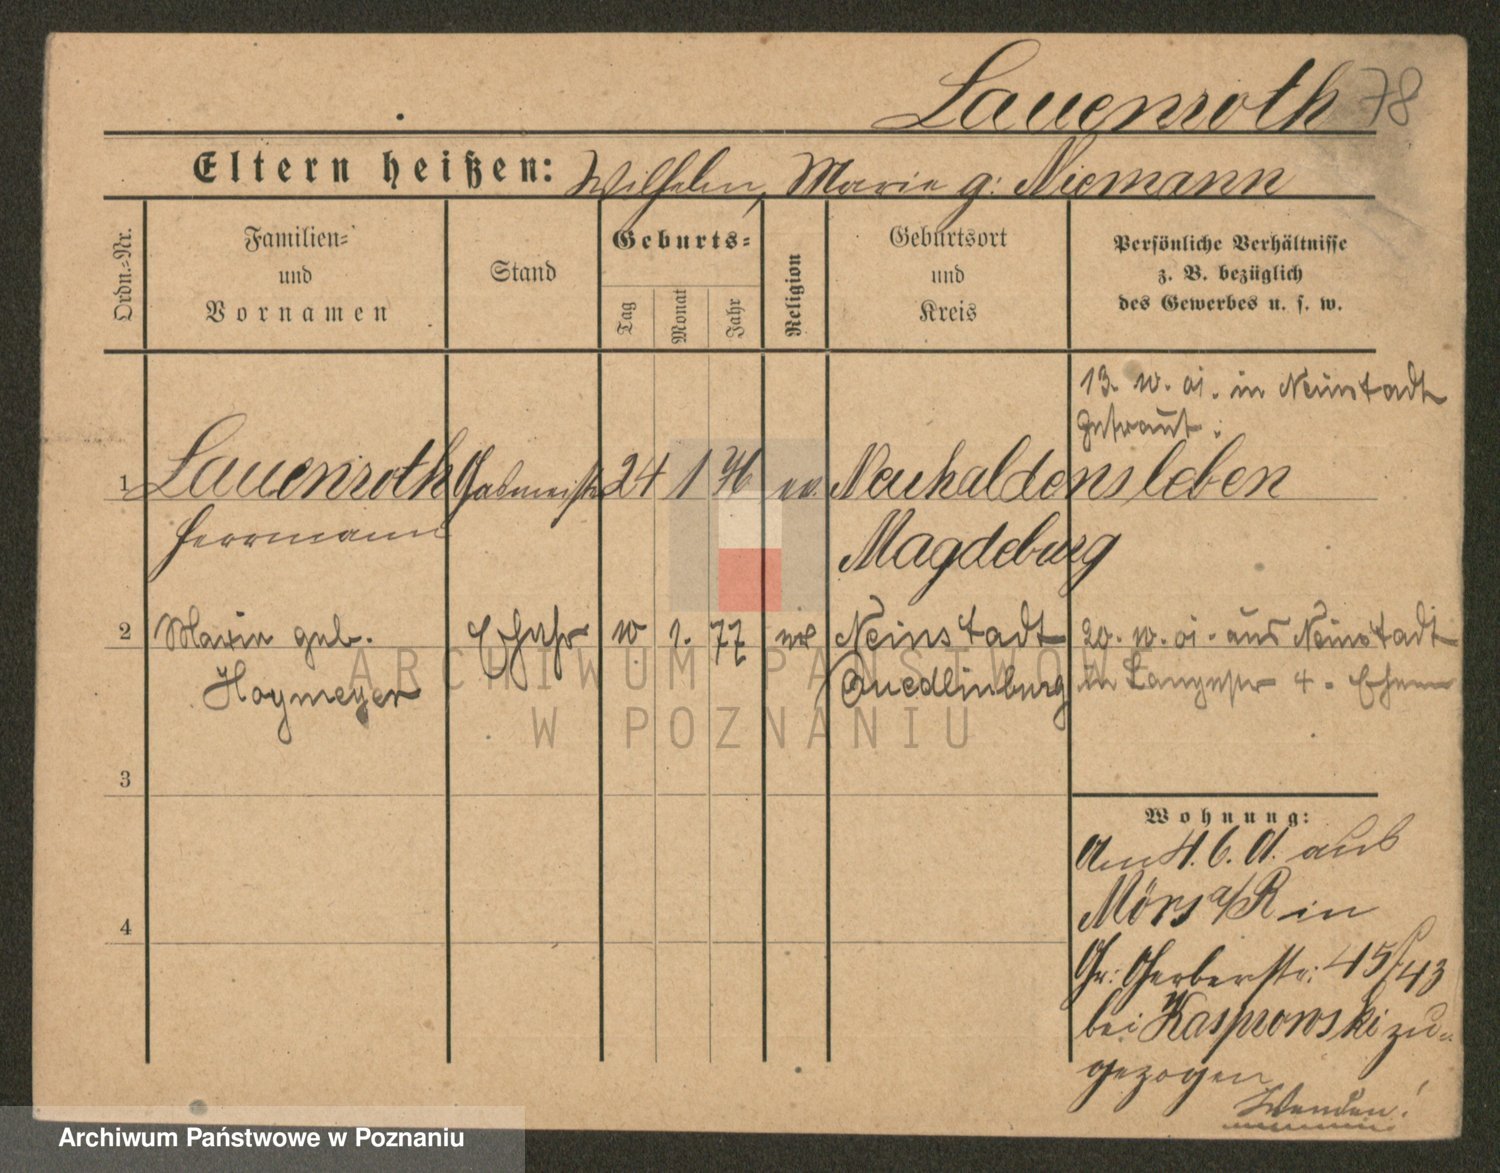 Lauenroth 78
Eltern heißen: Wilhelm, Marie g: Niemann
Ordn.-Nr.
Familien-
und
Vornamen
Stand
Geburts-
Tag
Monat
Jahr
Religion
Geburtsort
und
Kreis
Persönliche Verhältnisse
z. B. bezüglich
des Gewerbes u. s. w.
13. 10. 01. in Neinstadt
getraut.
1 Lauenroth Gasmeister 24 1 76 ev. Neuhaldensleben
Herrmann Magdeburg
2 Marie geb. 10 1. 77 ev Neinstadt 20. 10. 01. aus Neinstadt
Hoymeyer Quedlinburg in Langestr 4.
3
4
Wohnung:
Am 4. 6. 01. aus
Mörs a/R in
Gr: Gerberstr: 45/43
bei Kasprowski zu-
gezogen
Wenden!
ARCHIWUM PAŃSTWOWE
W POZNANIU
Archiwum Państwowe w Poznaniu